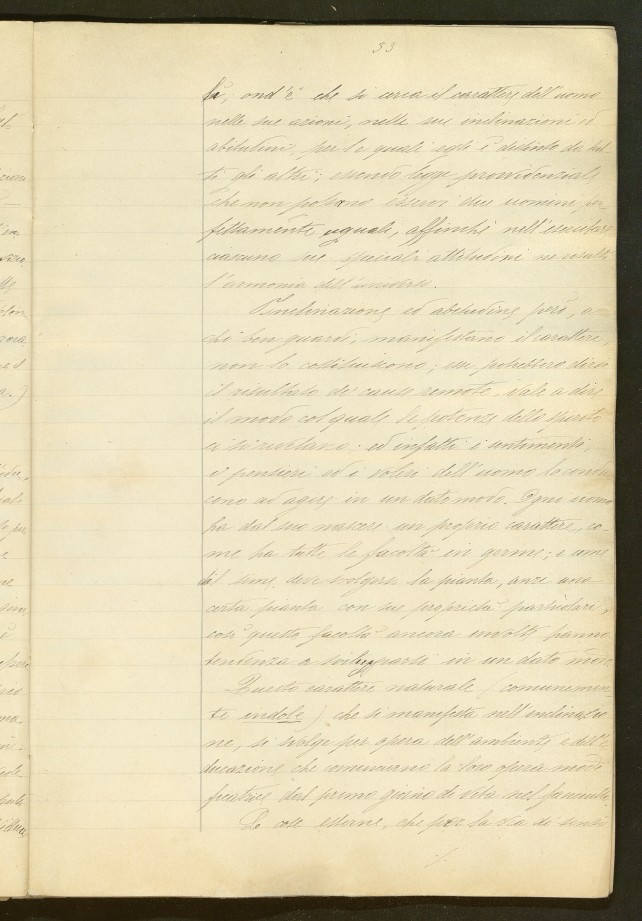 33
tà, ond'è che si cerca il carattere dell'uomo
nelle sue azioni, nelle sue inclinazioni ed
abitudini, per le quali egli è distinto da tut-
ti gli altri; essendo legge provvidenziale
che non possano esservi due uomini per-
fettamente uguali, affinché nell'esercitare
ciascuno sue speciali attitudini ne risulti
l'armonia dell'universo.
Inclinazione ed abitudine però, a
chi ben guardi, manifestano il carattere,
non lo costituiscono; si potrebbero dire
il risultato di cause remote, vale a dire
il modo col quale le potenze dello spirito
ci si rivelano: ed infatti i sentimenti,
i pensieri ed i voleri dell'uomo lo condu-
cono ad agire in un dato modo. Ogni uomo
ha dal suo nascere un proprio carattere, co-
me ha tutte le facoltà in germe; e come
dal seme deve svolgersi la pianta, anzi una
certa pianta con sue proprietà particolari,
così queste facoltà ancora involte hanno
tendenza a svilupparsi in un dato modo.
Questo carattere naturale (comunemen-
te indole) che si manifesta nell'inclinazio-
ne, si svolge per opera dell'ambiente e dell'e-
ducazione che cominciano la loro opera modi-
ficatrice dal primo giorno di vita nel fanciullo.
Le cose esterne, che per la via di sensi